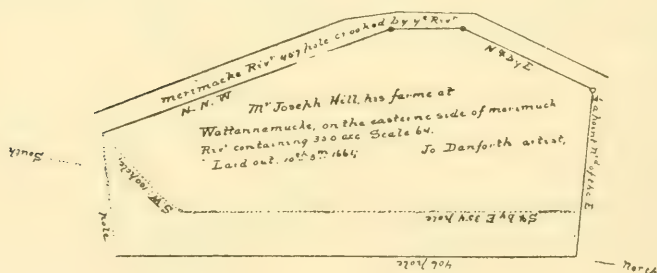 merimacke Rivr 407 pole crooked by ye Rivr
N. N. W
N 4 by E
Mr Joseph Hill, his farme at
Wattannamucke, on the easterne side of merimuck
Rivr containing 300 acc Scale 64.
Laid out. 10th 3m 1661; Jo Danforth artist,
a point N'd of the E
South
S.W. 100 pole
pole
S4 by E 354 pole
406 pole
North